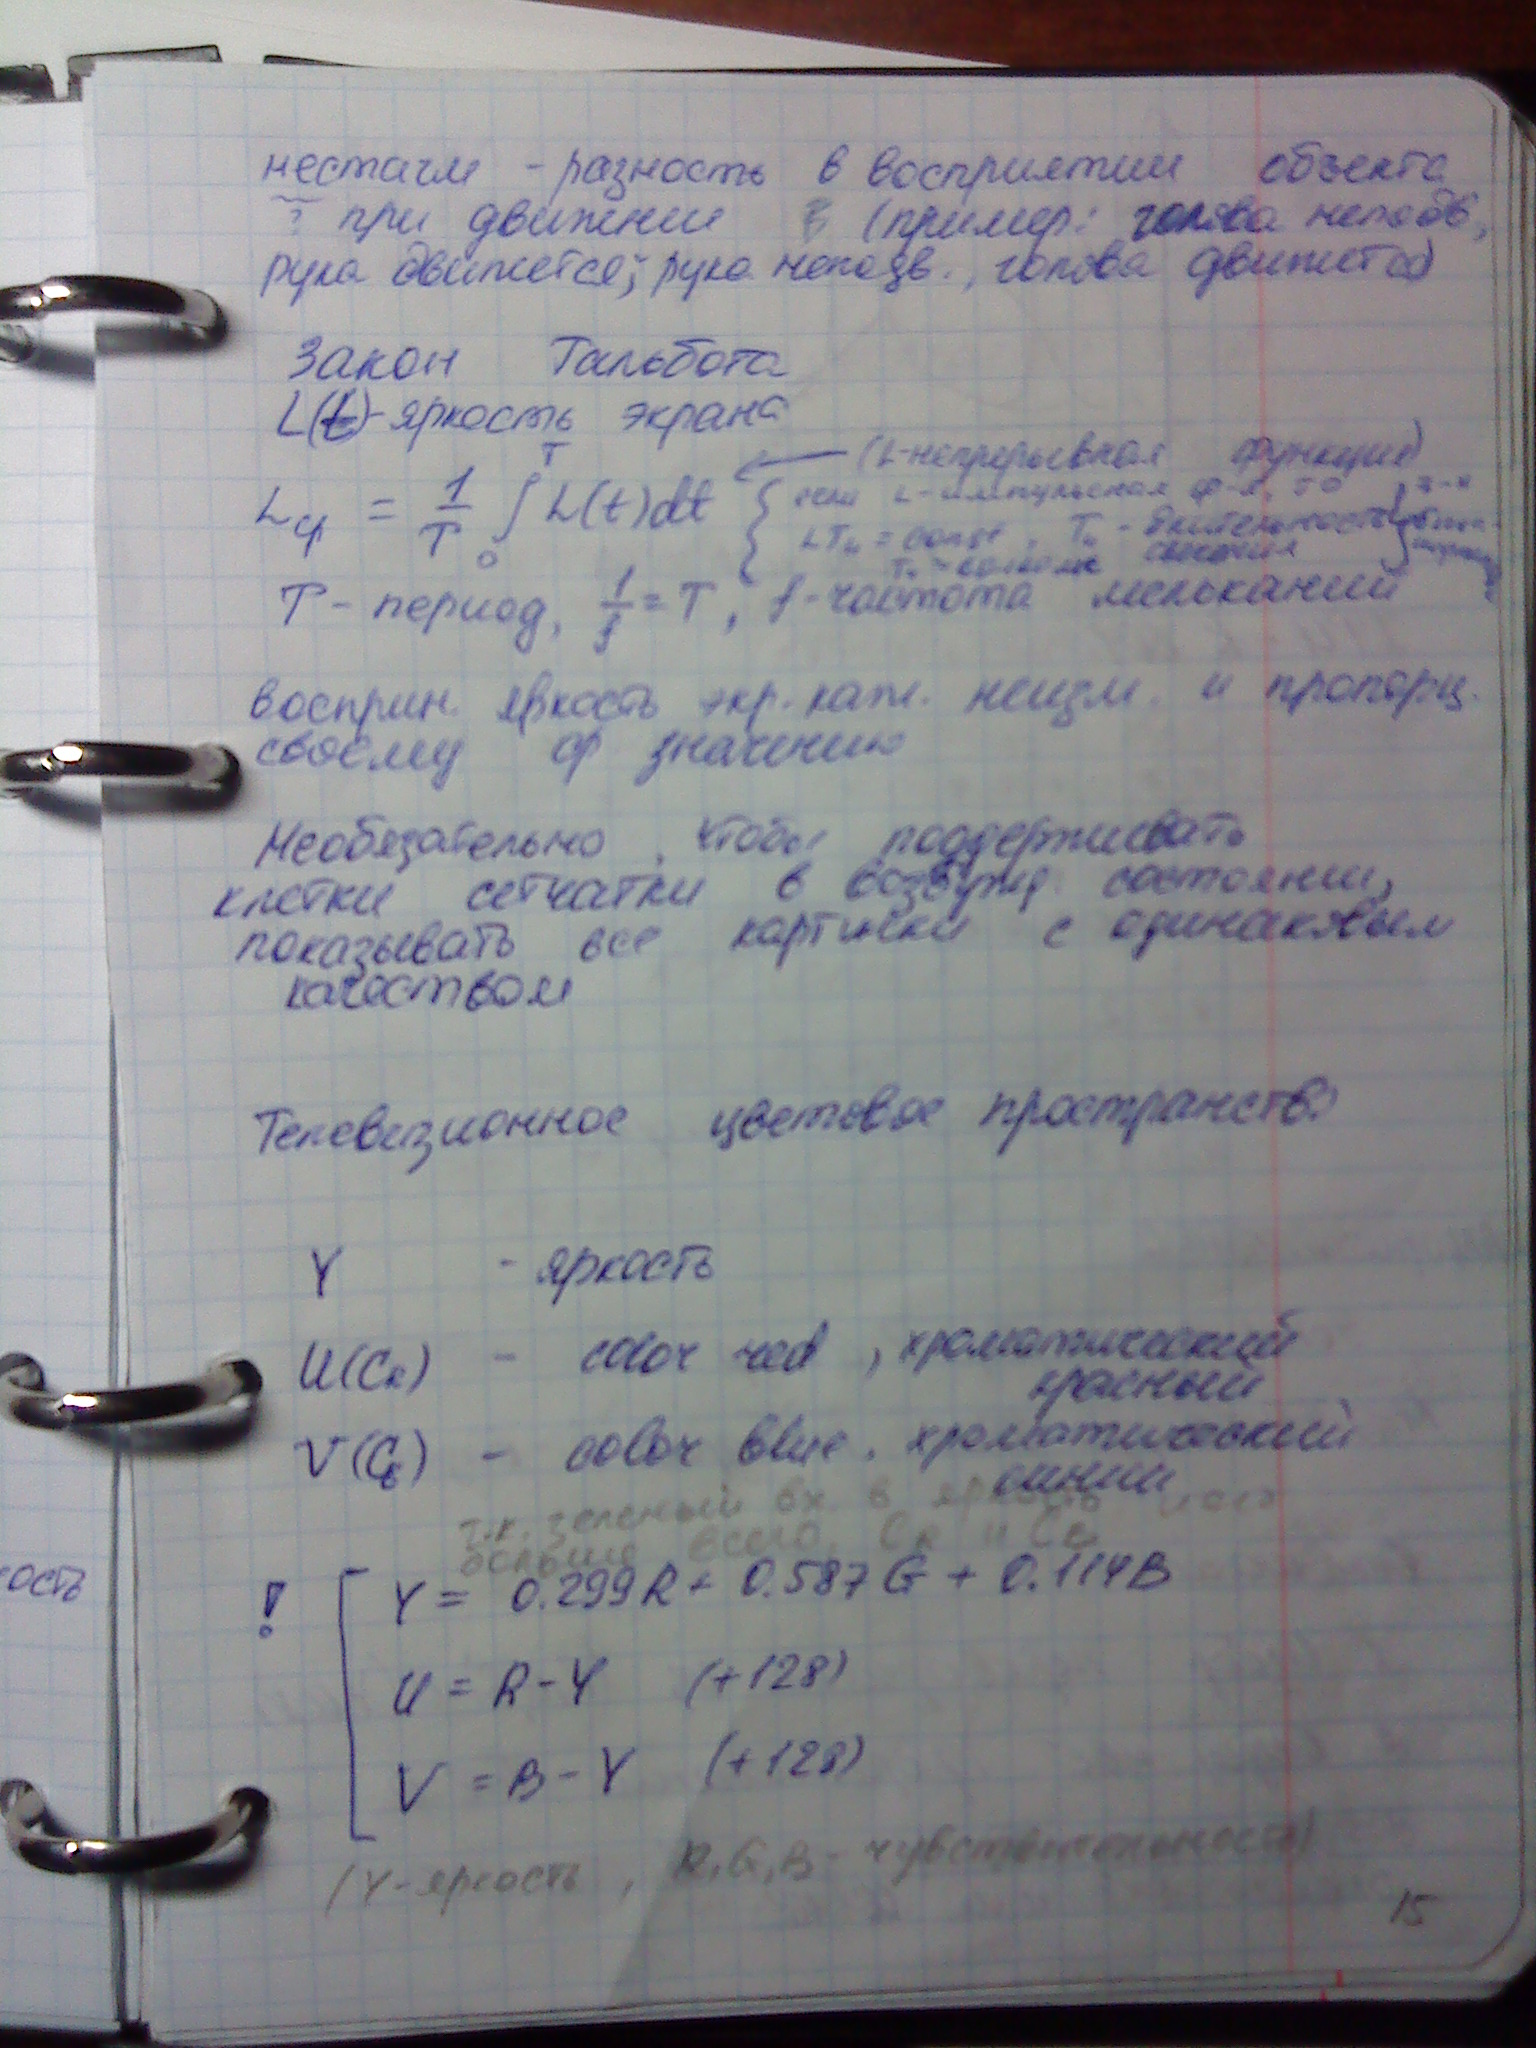 нестагм - разность в восприятии объекта
? при движении (пример: голова неподв,
рука движется; рука неподв., голова движется)
Закон Тальбота
L(t) - яркость экрана
(L-непрерывная функция)
Lср = 1/T ∫₀ᵀ L(t)dt
если L-импульсная ф-я, то
LTи = const, Tи - длительность
свечения
T - период, 1/f = T, f - частота мельканий
восприн. яркость экр. каж. неизм. и пропорц.
своему ср значению
Необязательно, чтобы поддерживать
клетки сетчатки в возбужд. состоянии,
показывать все картинки с одинаковым
качеством
Телевизионное цветовое пространство
Y - яркость
U(CR) - color red, хроматический
красный
V(Cb) - color blue, хроматический
синий
т.к. зеленый вх. в яркость
больше всего, CR и CB
! Y = 0.299R + 0.587G + 0.114B
U = R - Y (+128)
V = B - Y (+128)
(Y-яркость, R,G,B - чувствительности)
15
ость